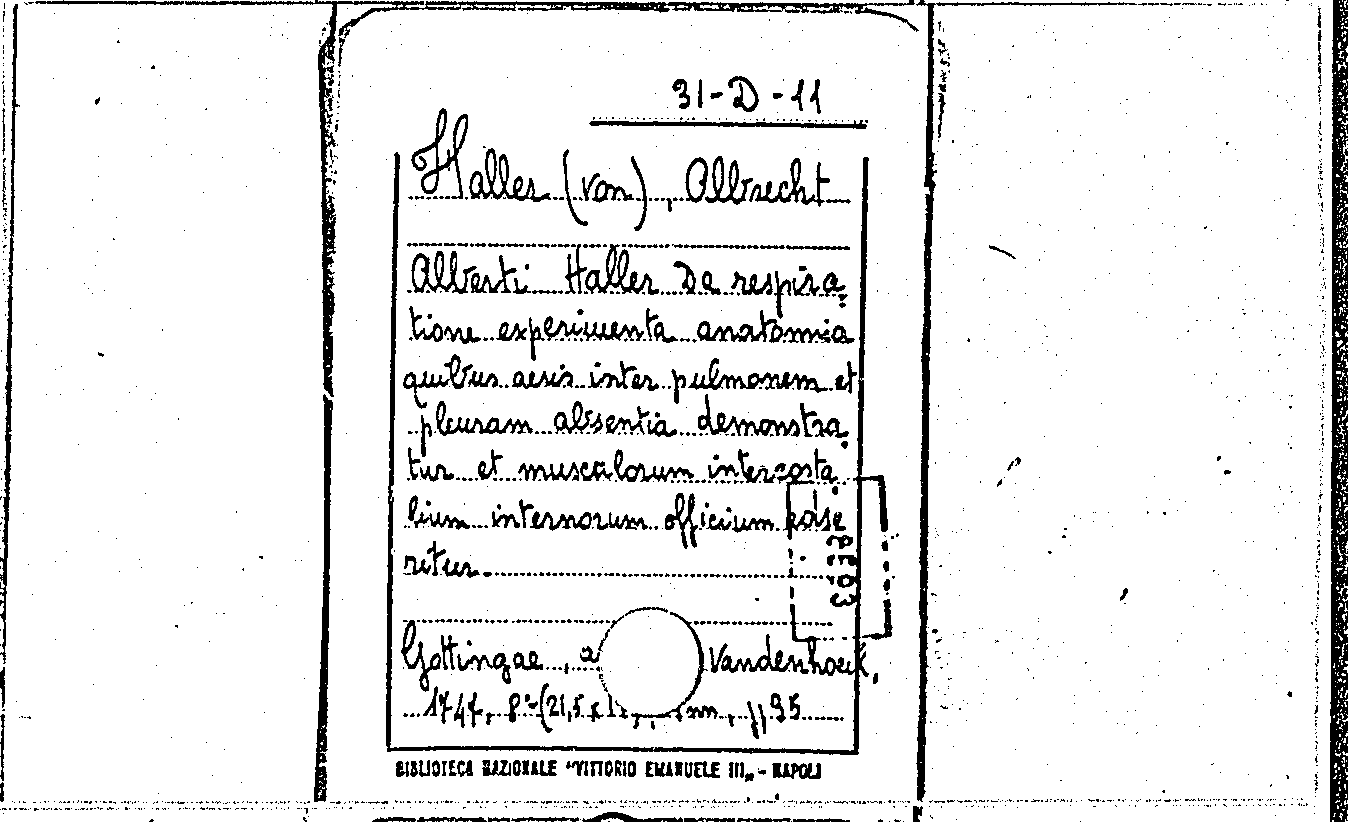 31-D-11
Haller (von), Albrecht
Alberti Haller De respira-
tione experimenta anatomia
quibus aeris inter pulmonem et
pleuram absentia demonstra-
tur et musculorum intercosta-
lium internorum officium adse
ritur.
Gottingae, a Vandenhoeck,
1747, 8° (21,5 x pp 95
BIBLIOTECA NAZIONALE "VITTORIO EMANUELE III„ - NAPOLI